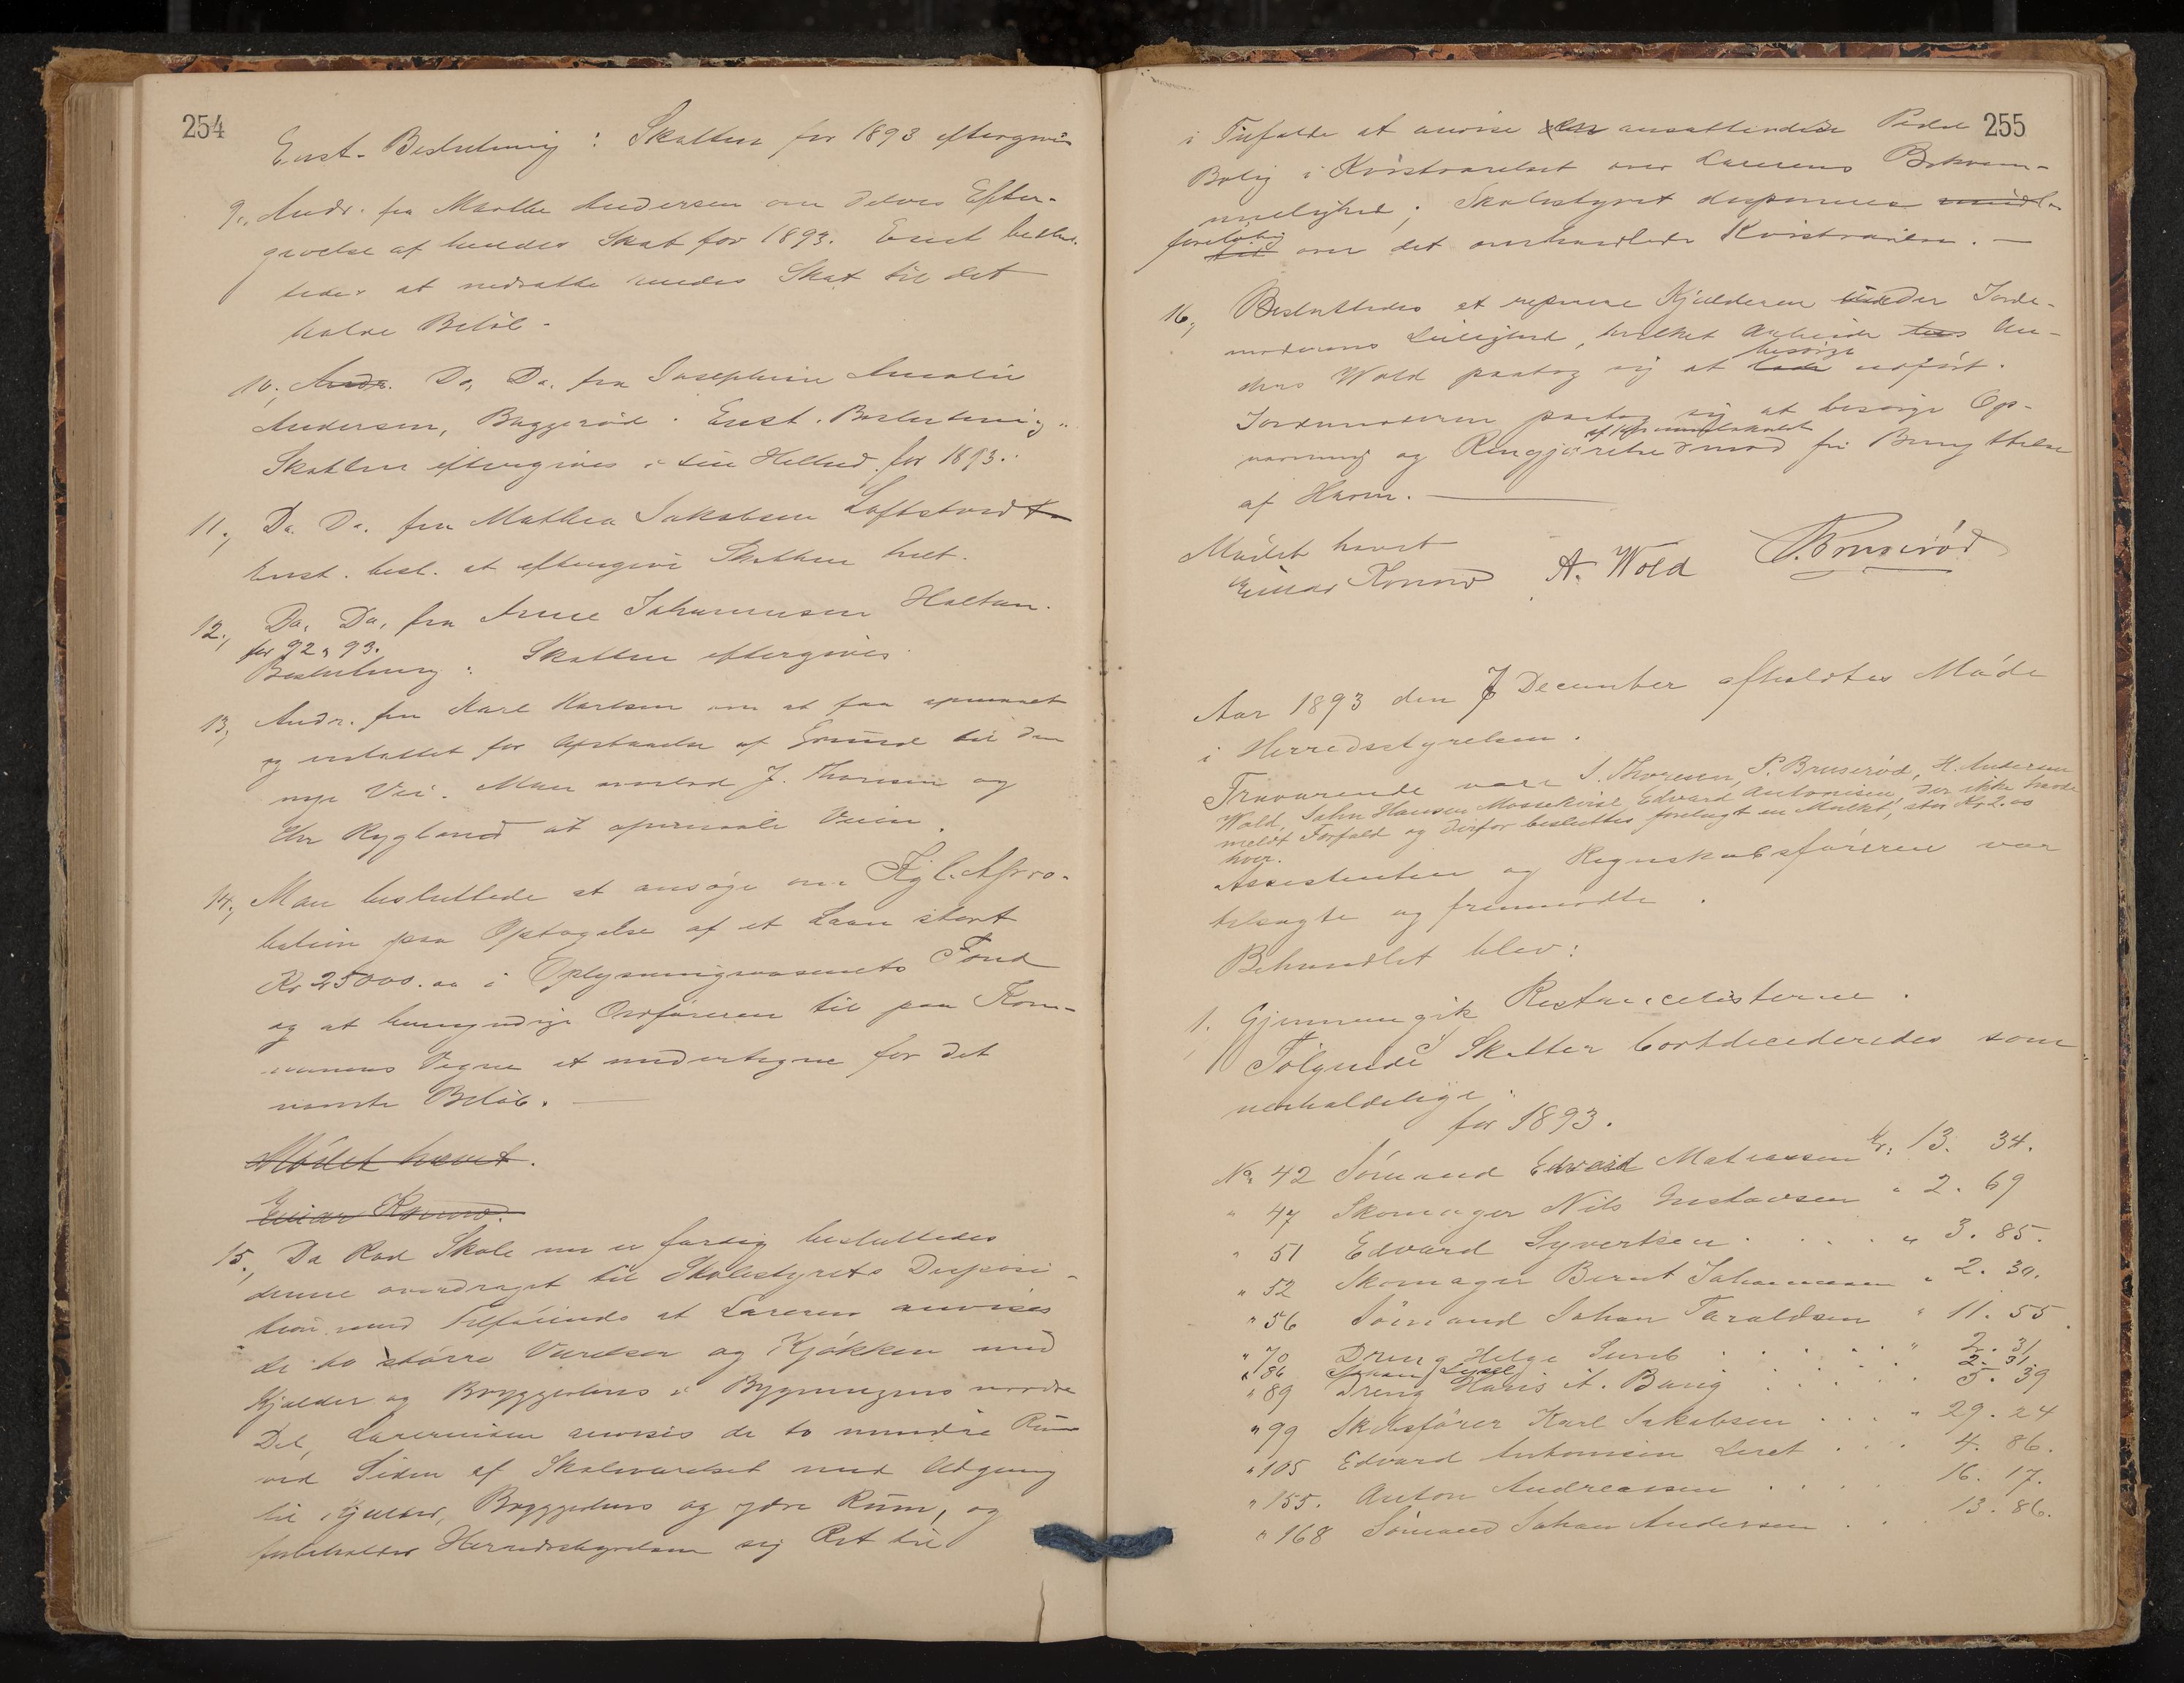 254
Enst. Beslutning: Skatten for 1893 eftergives
9., Andr. fra Marthe Andersen om delvis Efter-
givelse af hendes Skat for 1893. Enst beslut-
tedes at nedsætte hendes Skat til det
halve Beløb.
10., Andr. Do, Do. fra Josephine Amalie
Andersen, Baggerød. Enst. Beslutning:
Skatten eftergives i sin Helhed for 1893.
11., Do. Do. fra Mathea Jakobsen Loftstvedt
Enst. besl. at eftergive Skatten helt.
12., Do. Do. fra Anne Johannesen Haltun.
for 92 & 93.
Beslutning: Skatten eftergives.
13., Andr. fra Karl Karlsen om at faa opmaalt
og erstattet for Afstaaelse af Grund til den
nye Vei. Man anmod J. Thoresen og
Chr Rygland at opmaale Veien.
14., Man besluttede at ansøge om Kgl. Appro-
bation paa Optagelse af et Laan stort
Kr 25000.00 i Oplysningsvæsenets Fond
og at bemyndige Ordføreren til paa Kom-
munens Vegne at undertegne for det
nævnte Beløb. —
Mødet hævet.
Einar Konow.
15., Da Rød Skole nu er færdig besluttedes
denne overdraget til Skolestyrets Disposi-
tion med Tilføiende at Læreren anvises
de to større Værelser og Kjøkken med
Kjælder og Bryggerhus i Bygningens nordre
Del, Lærerinden anvises de to mindre Rum
ved Siden af Skoleværelset med Adgang
til Kjælder, Bryggerhus og ydre Rum, og
forbeholder Herredsstyrelsen sig Ret til
255
i Tilfælde at anvise den ansættendes Bedste
Bolig i Kvistværelset over Lærerens Bekvem-
melighed; Skolestyret disponerer midl.
foreløbig
tid over det omhandlede Kvistværelse. —
16., Besluttedes at reparere Kjælderen under Jorde-
moderens Leilighed, hvilket Arbeide An-
besørge
dreas Wold paatog sig at lade udført.
Jordemoderen paatog sig at besørge Op-
af Kommunelokalet
varming og Rengjørelse mod fri Benyttelse
af Haven. —
Mødet hævet
Einar Konow A. Wold P. Bruserød
Aar 1893 den 7 December afholdtes Møde
i Herredsstyrelsen.
Fraværende vare J. Thoresen, P. Bruserød, H. Andersen
Wold, John Hansen Mossekvist, Edvard Antonisen, der ikke havde
meldt Forfald og derfor besluttes forelagt en Mulkt, stor Kr. 2.00
hver.
Assistenten og Regnskabsføreren var
tilsagte og fremmødte.
Behandlet blev:
1. Gjennemgik Restancelisterne.
Følgende Skatter bortdecideredes som
uerholdelige:
for 1893.
No 42 Sømand Edvard Mathiassen Kr. 13. 34.
" 47 Skomager Nils Gustavsen " 2. 69
" 51 Edvard Syvertsen . . . . " 3. 85.
" 52 Skomager Bernt Johannesen " 2. 30.
" 56 Sømand Johan Taraldsen " 11. 55.
" 70 Dreng Helge Sund . . . . " 2. 31
" 86 Johan Lysel . . . . 2. 31.
" 89 Dreng Hans A. Bang . . . . 5. 39
" 99 Skibsfører Karl Jakobsen . . . " 29. 24
" 105 Edvard Antonisen Leret . . . 4. 86.
" 155. Anton Andreassen . . . . 16. 17.
" 168 Sømand Johan Andersen . . . 13. 86.